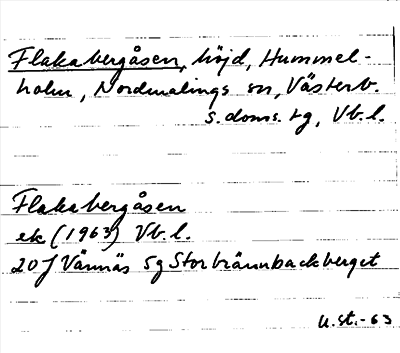 Flakabergåsen, höjd, Hummel-
holm, Nordmalings sn, Västerb.
s. doms. tg, Vb. l.
Flakabergåsen
ek (1963) Vb. l.
20J Vännäs 5g Storbrännbackberget
U. st. - 63